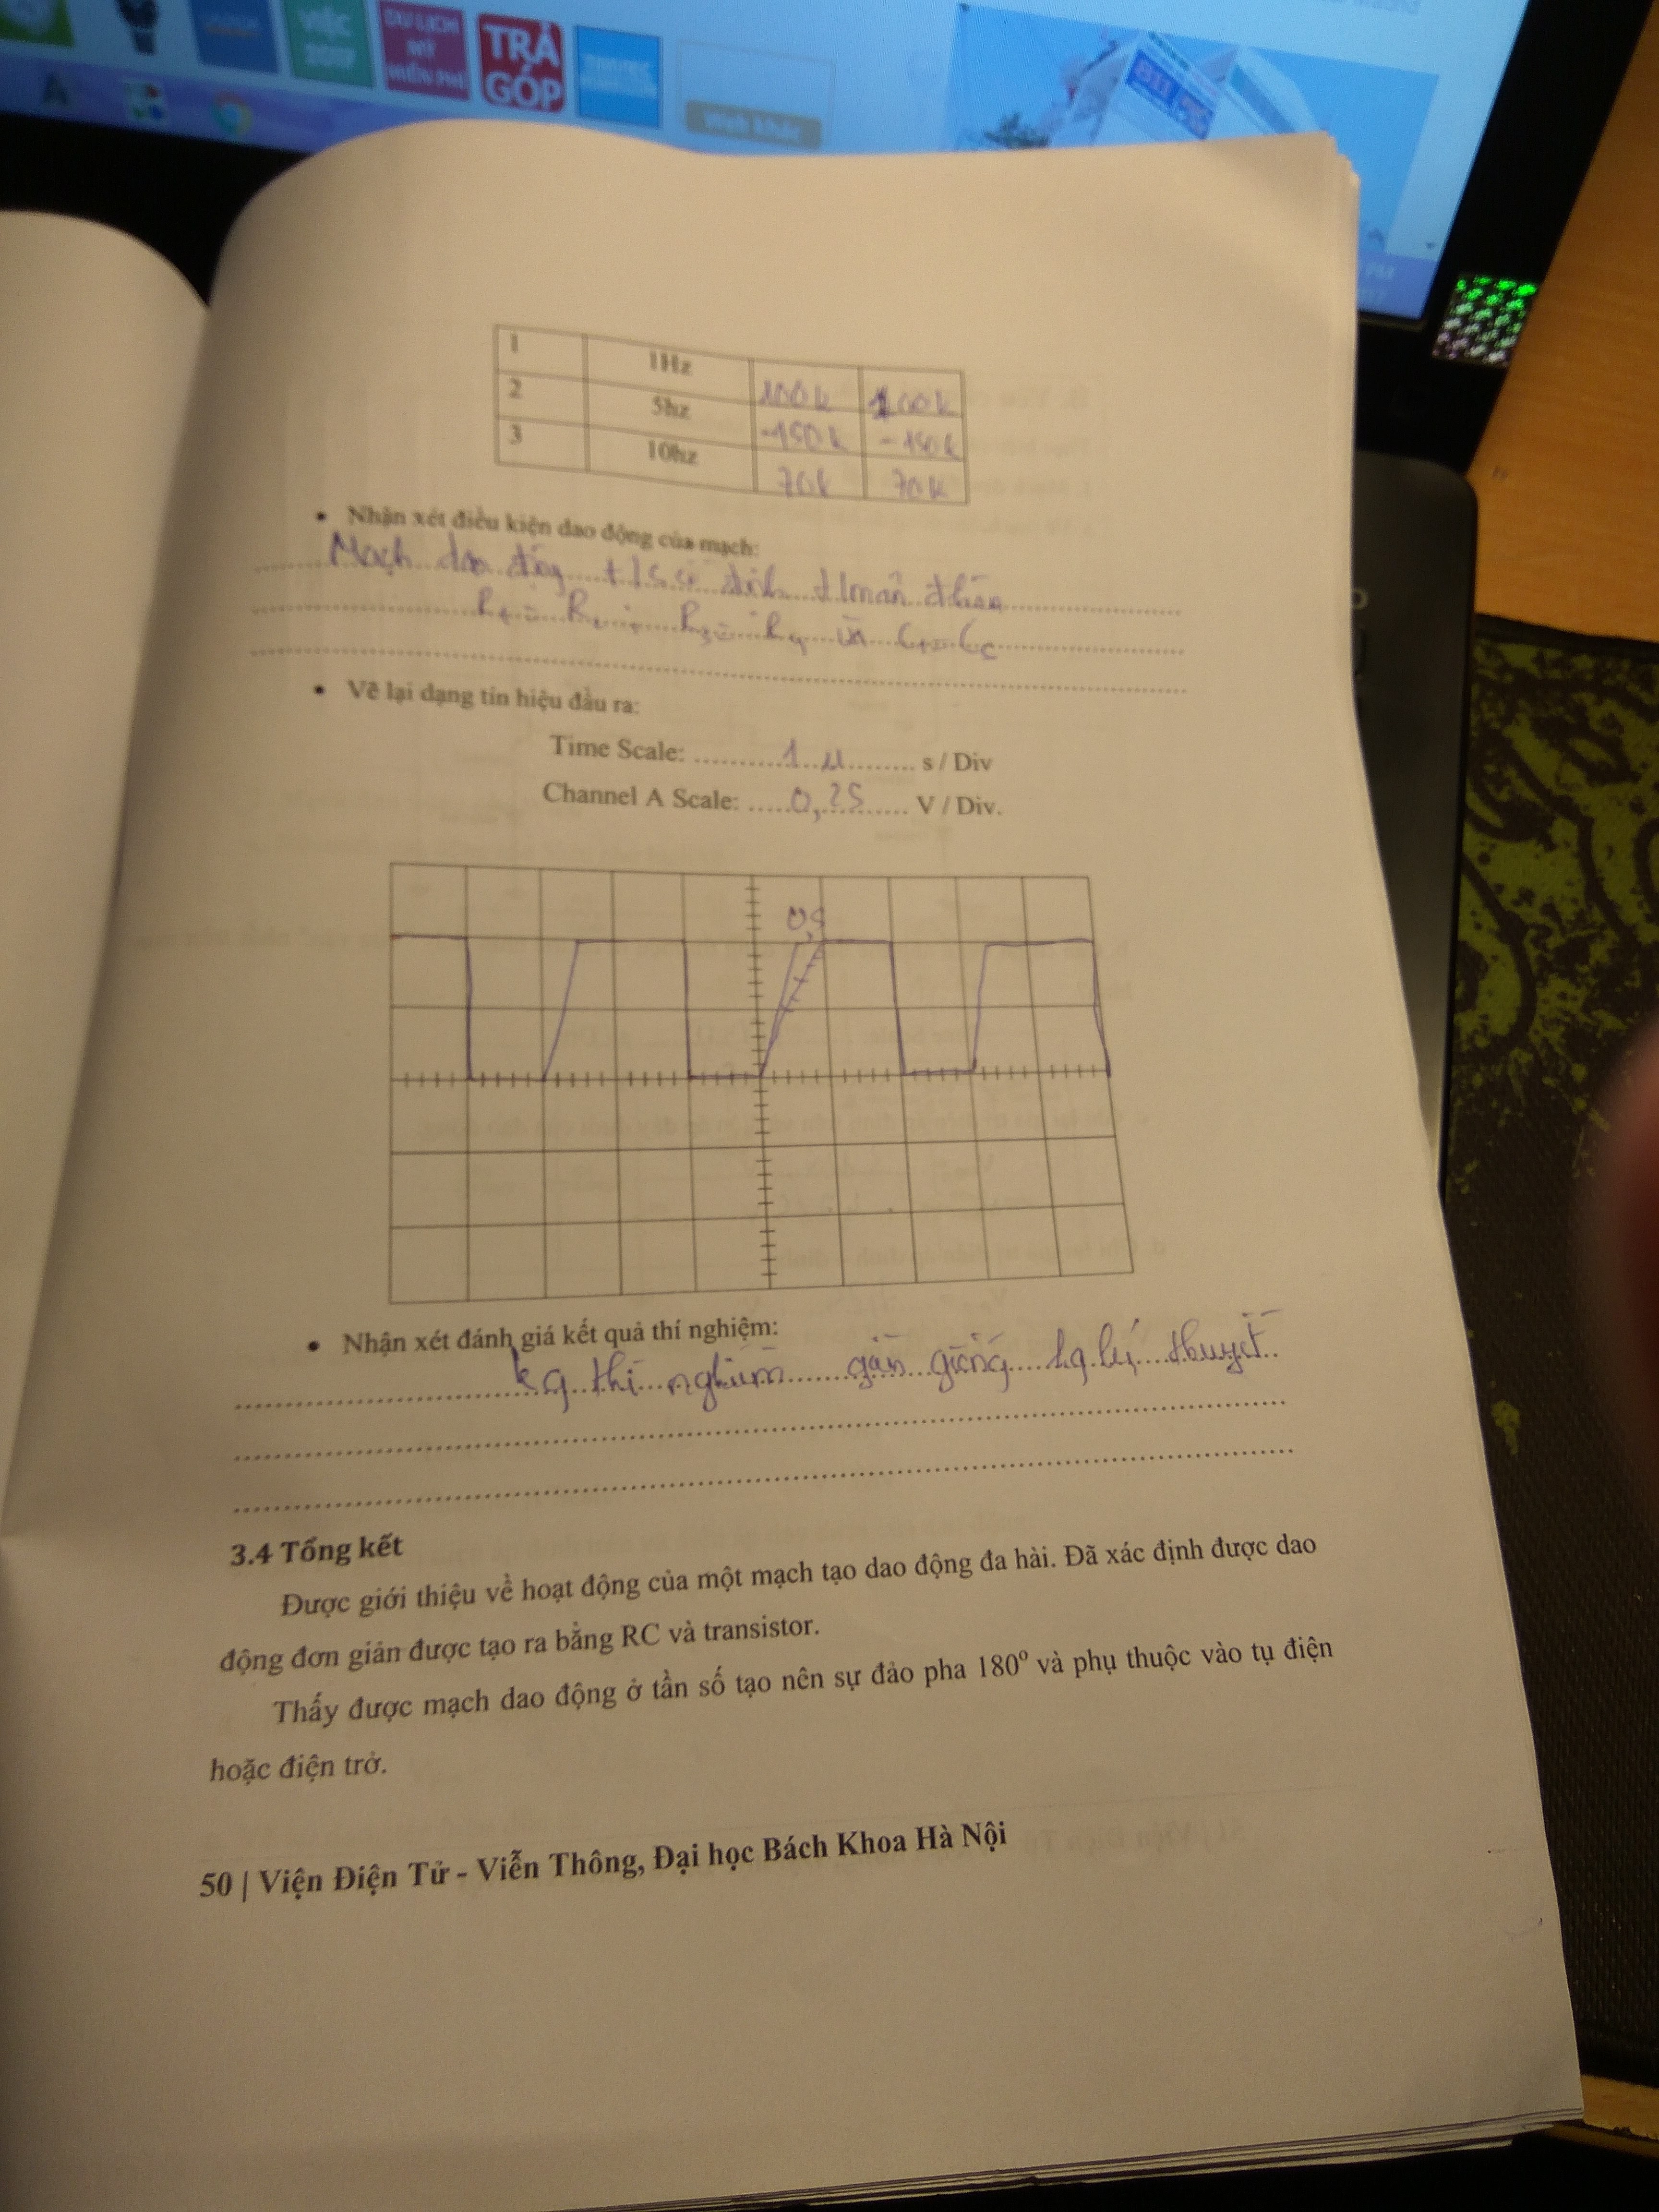 VIỆC
2017
DU LỊCH
MỸ
MIỄN PHÍ
TRẢ
GÓP
Web khác
PM
1 1Hz 100k 100k
2 5hz -150k -150k
3 10hz 70k 70k
• Nhận xét điều kiện dao động của mạch:
Mạch dao động
• Vẽ lại dạng tín hiệu đầu ra:
Time Scale: ............1..µ......... s / Div
Channel A Scale: .....0,25...... V / Div.
0,5
• Nhận xét đánh giá kết quả thí nghiệm:
kq thí nghiệm gần giống kq lý thuyết
3.4 Tổng kết
Được giới thiệu về hoạt động của một mạch tạo dao động đa hài. Đã xác định được dao
động đơn giản được tạo ra bằng RC và transistor.
Thấy được mạch dao động ở tần số tạo nên sự đảo pha 180° và phụ thuộc vào tụ điện
hoặc điện trở.
50 | Viện Điện Tử - Viễn Thông, Đại học Bách Khoa Hà Nội